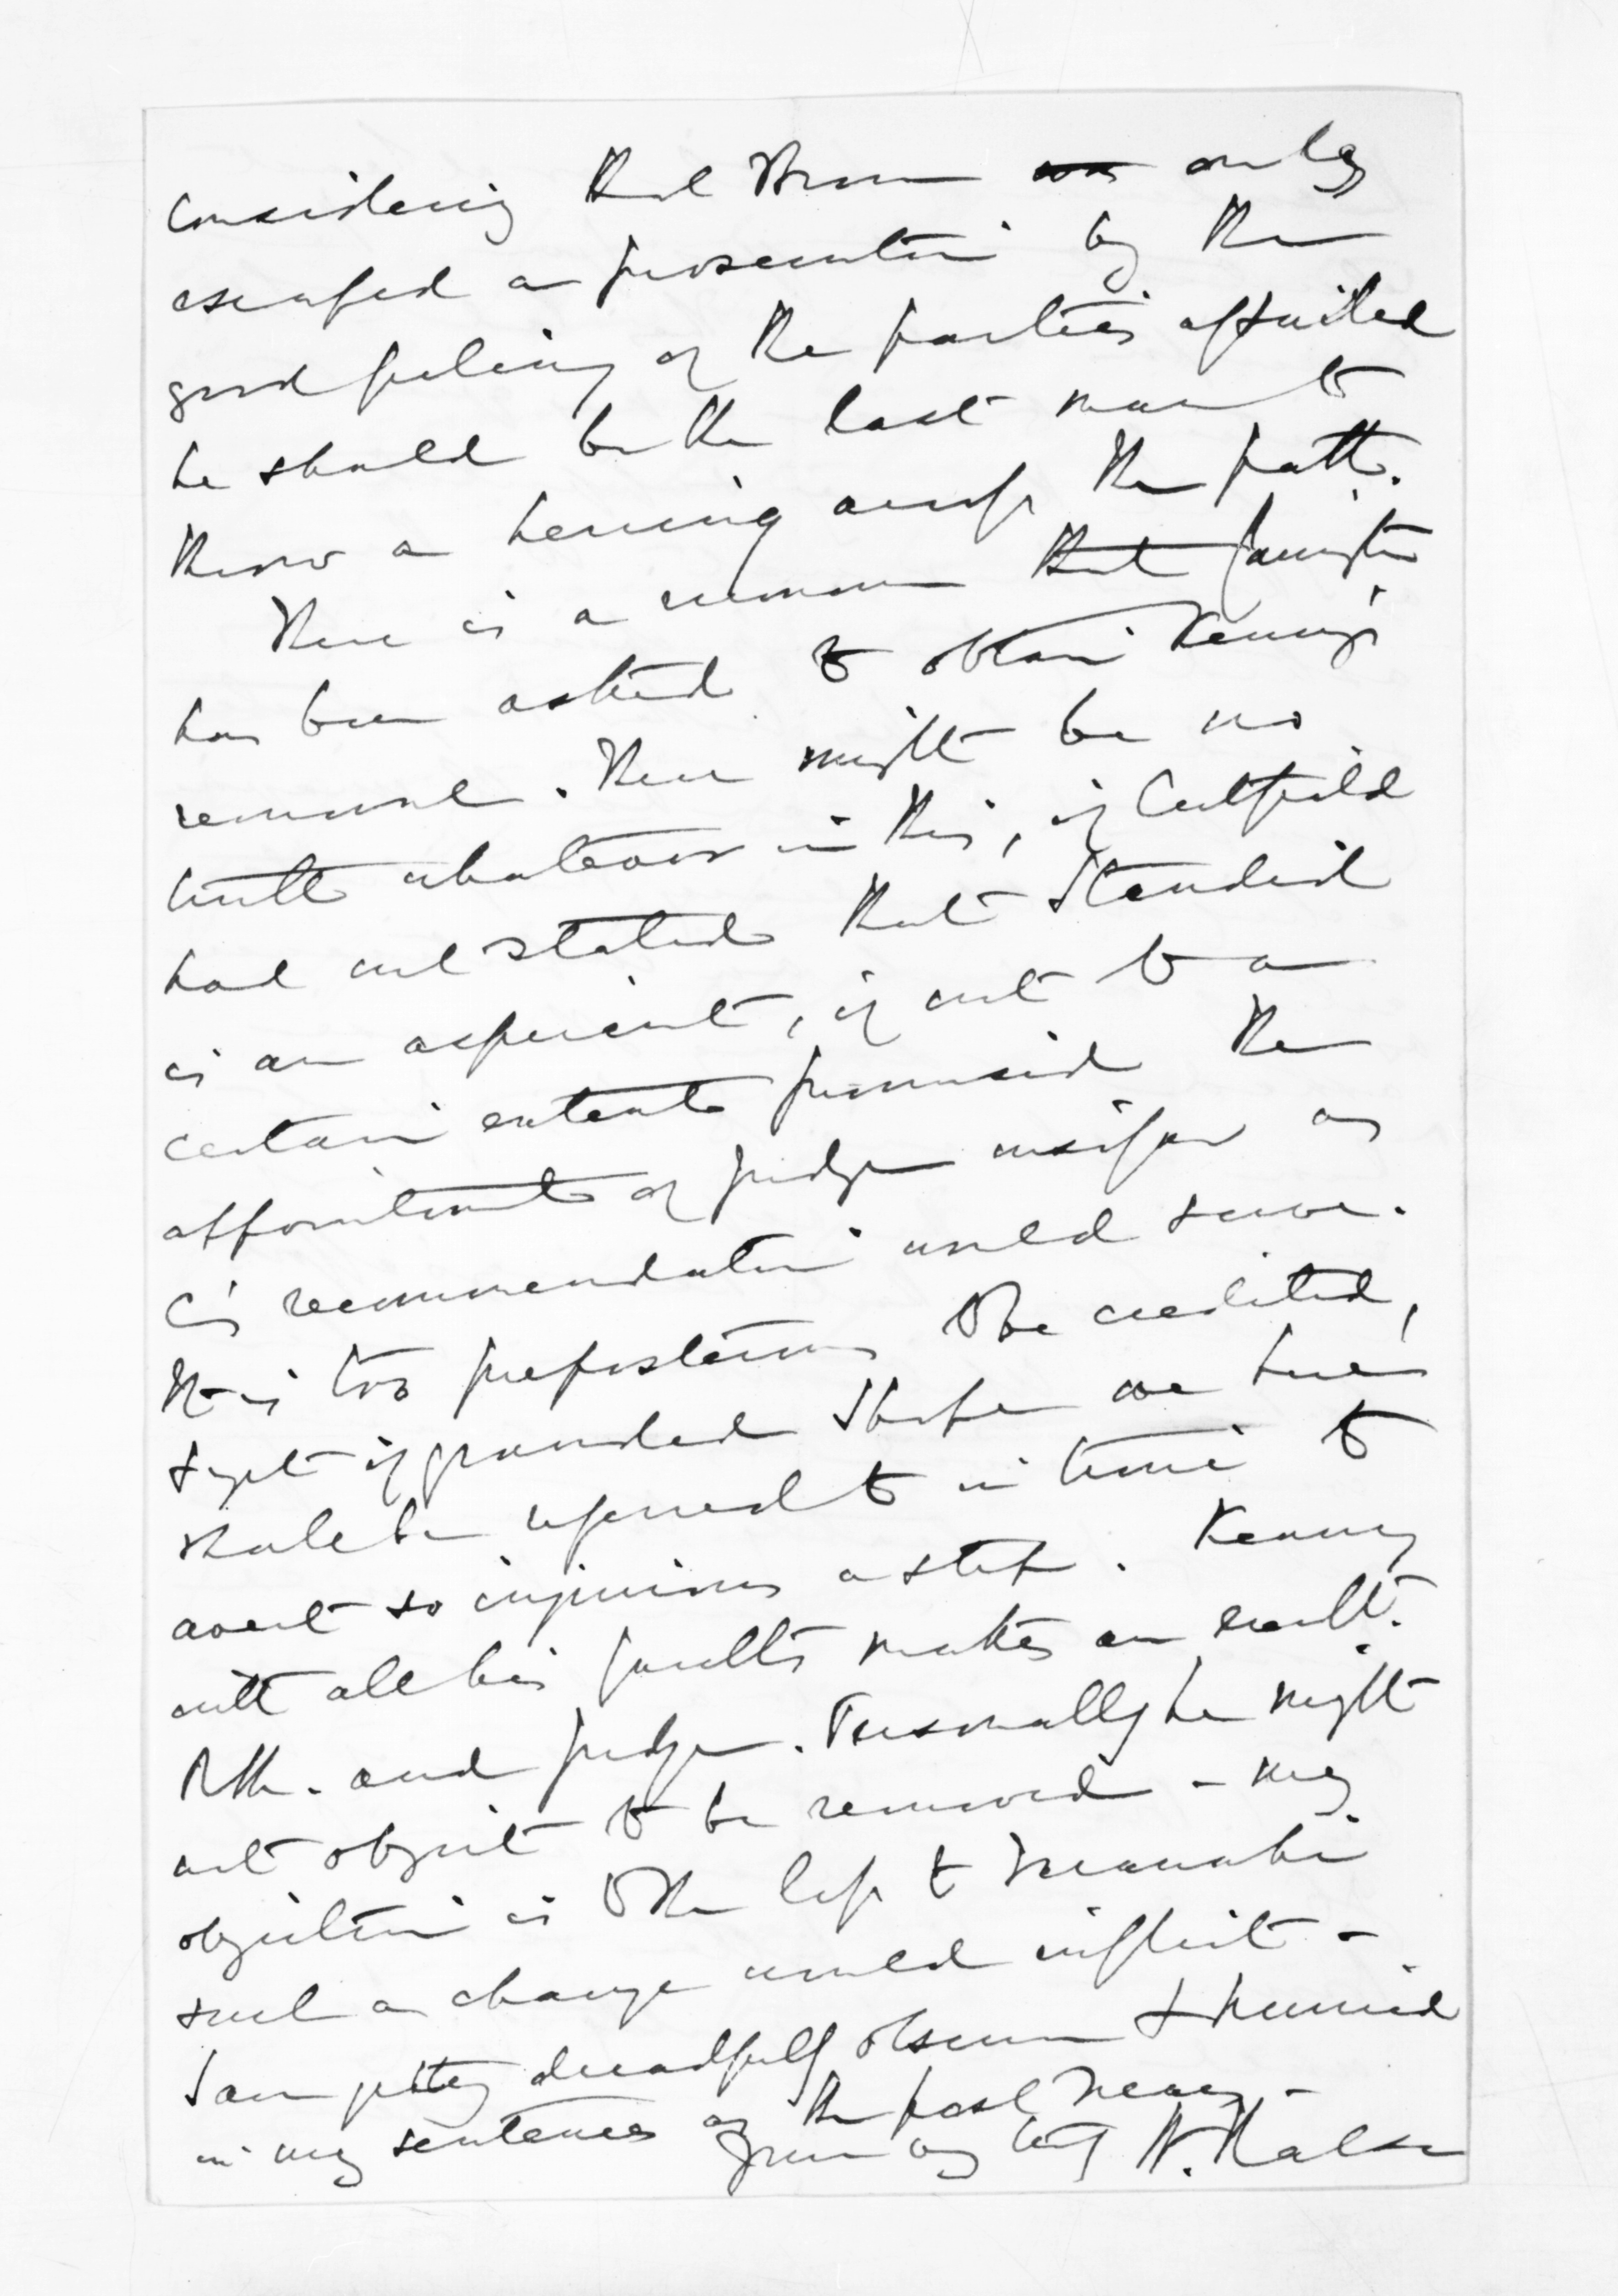 considering that Brown only
escaped a prosecution by the
good feeling of the parties assailed
he should be the last man to
throw a herring across the path.
There is a rumour that
has been asked to obtain Kenny's
removal. There might be no
truth whatever in this, if Cutfield
had not stated that
is an aspirant, if not to a
certain extent promised the
appointment of Judge as
his recommendation would serve.
It is too preposterous to be credited,
Yet if grounded I hope we here
shall be referred to in time to
avert so injurious a step. Kenny
with all his faults makes an excellt.
R.M. and Judge. Personally he might
not object to be removed - my
objection is to the loss to
such a change would inflict -
I am getting dreadfully obscure & hurried
in my sentences as the post nears -
yrs W.